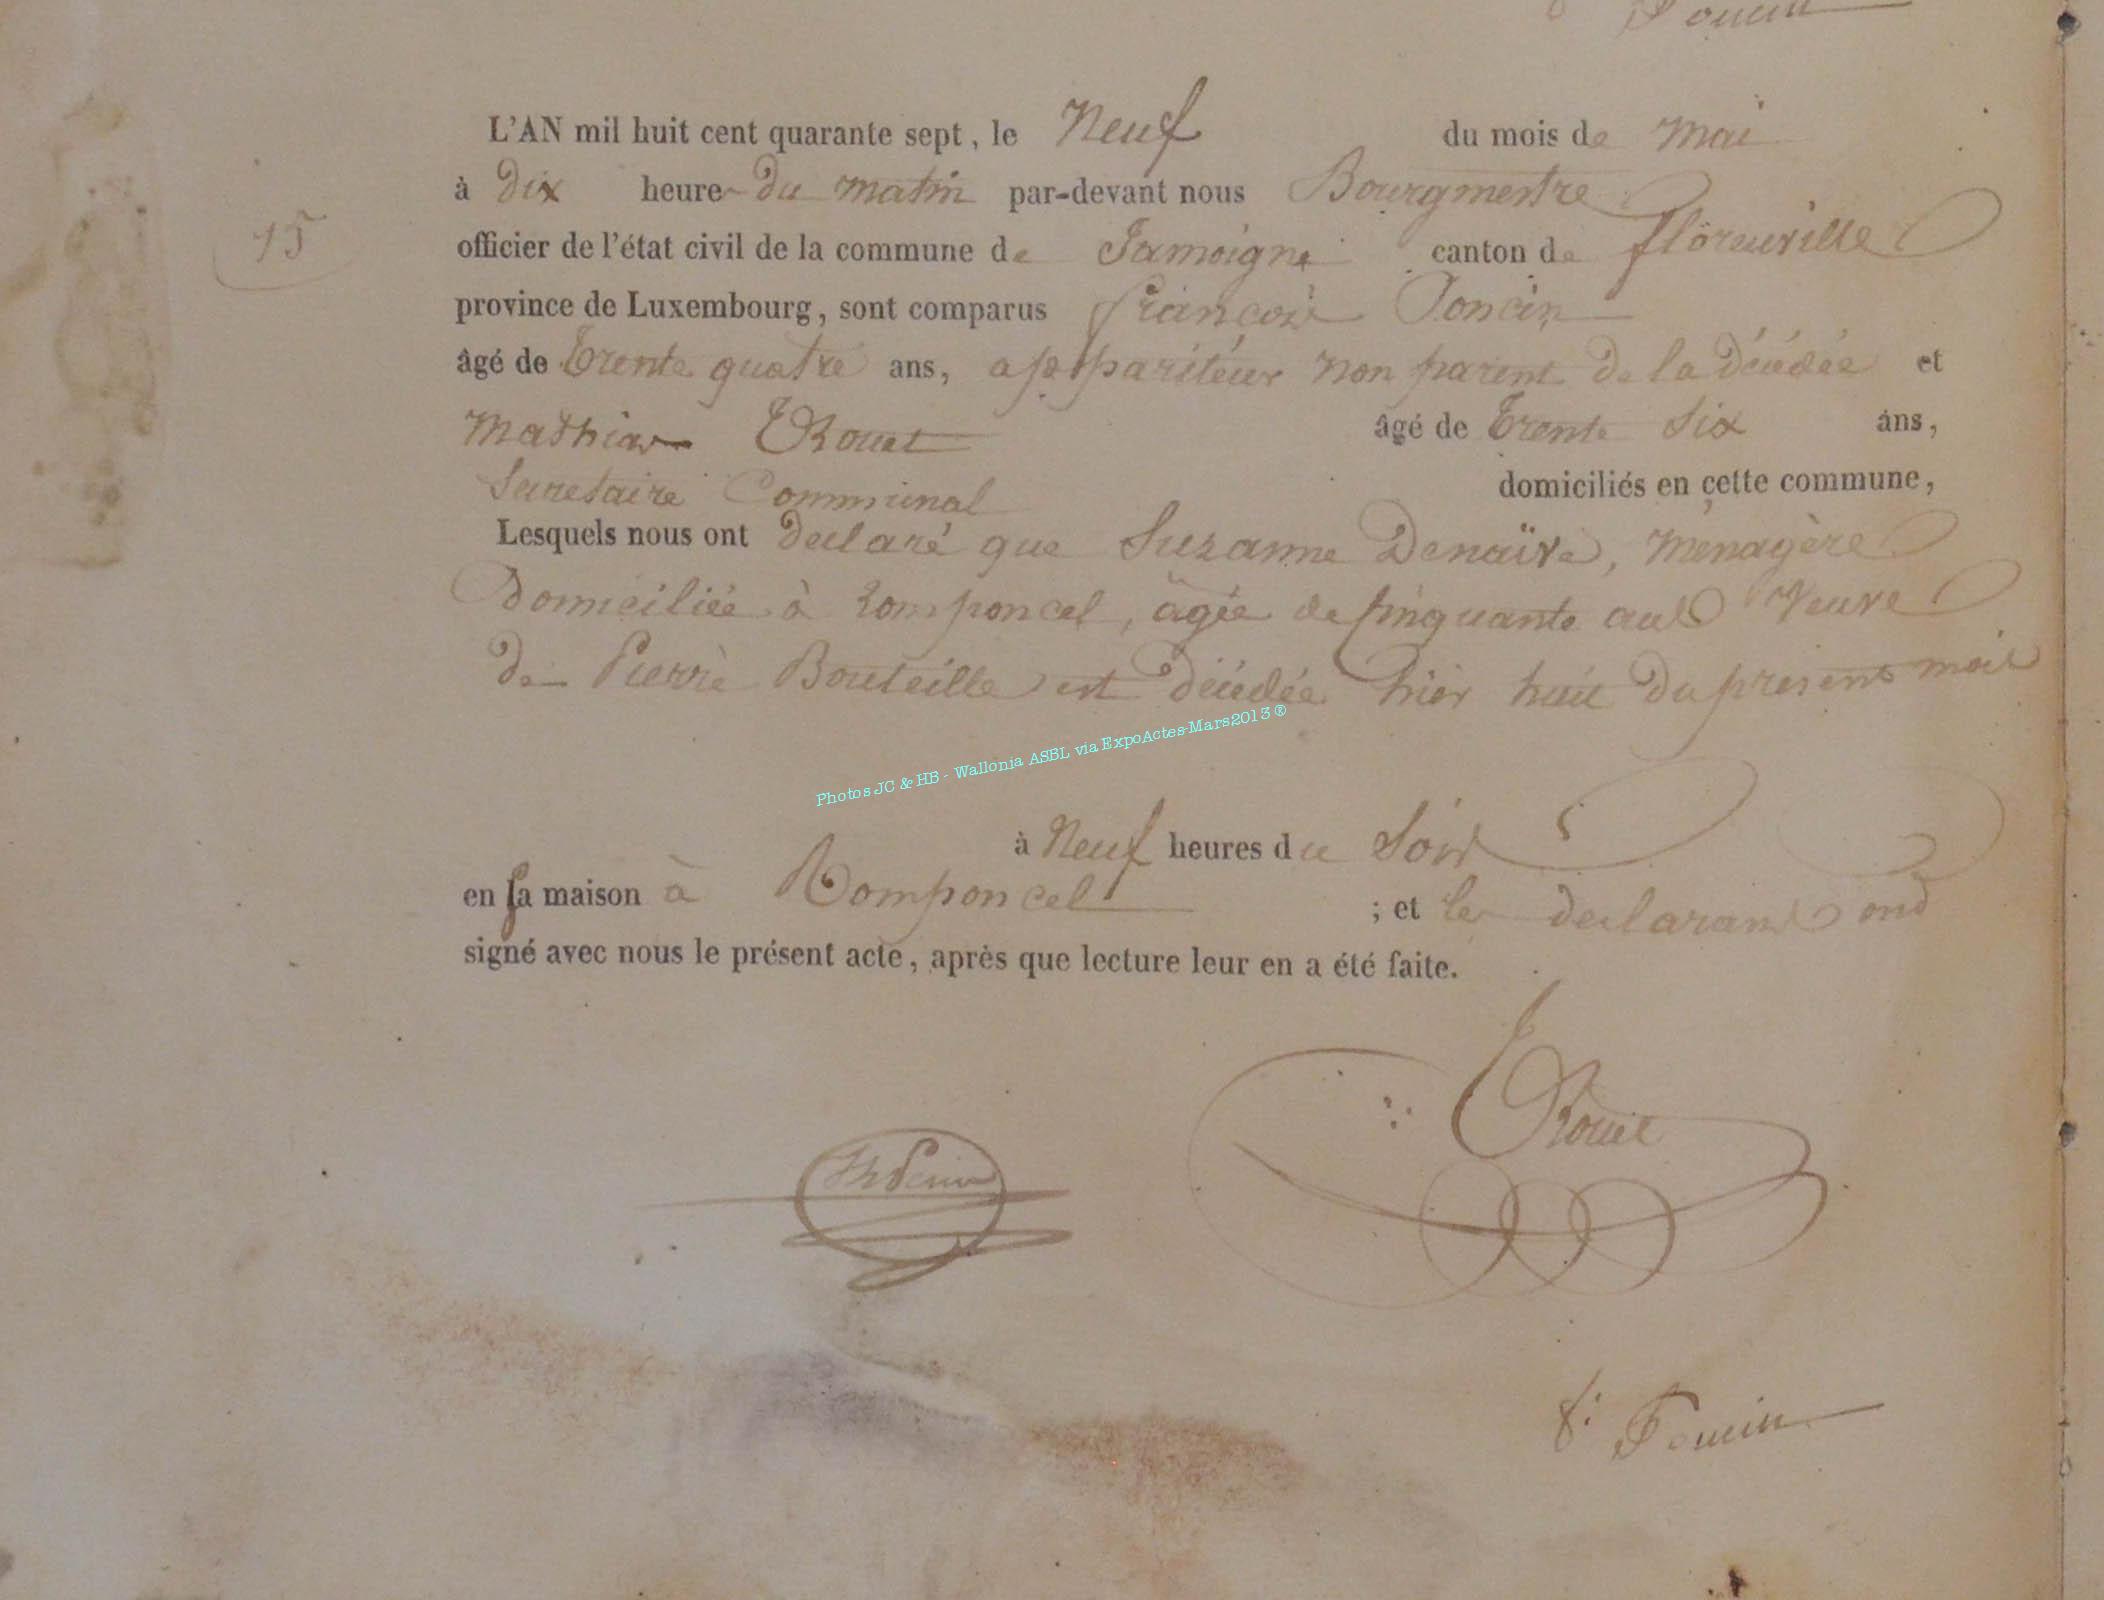 Poncin
L'AN mil huit cent quarante sept, le Neuf du mois de Mai
à dix heures du matin par-devant nous Bourgmestre
15
officier de l'état civil de la commune de Jamoigne canton de florenville
province de Luxembourg, sont comparus françois Poncin
âgé de Trente quatre ans, appariteur non parent de la décédée et
Mathieu Rouet âgé de Trente Six ans,
Secretaire Communal domiciliés en cette commune,
Lesquels nous ont declaré que Suzanne Denaïve, ménagère
Domiciliée à Romponcel, âgée de cinquante ans Veuve
de Pierre Bouteille est décédée hier huit du present mois
Photos JC & HB - Wallonia ASBL via ExpoActes-Mars2013 ®
à Neuf heures du Soir
en sa maison à Romponcel ; et les declarans ont
signé avec nous le présent acte, après que lecture leur en a été faite.
Rouet
f. Poncin